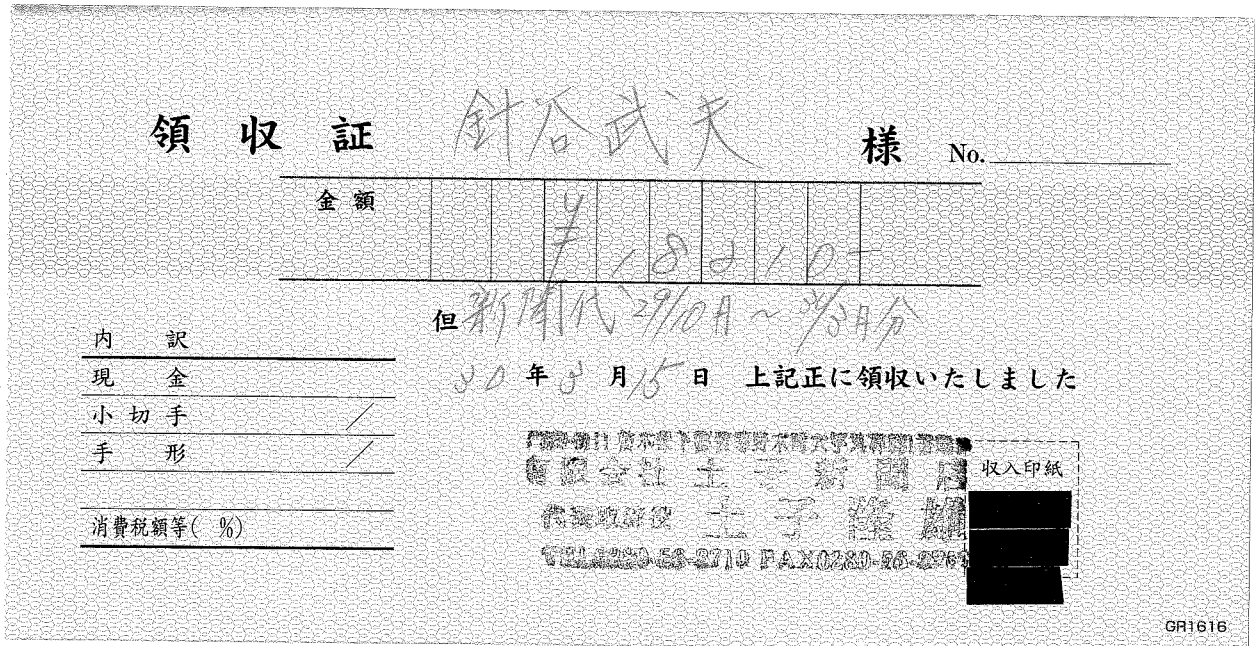 領収証 針谷武夫 様 No.
金額 ¥18210-
但 新聞代 29/10月〜30/3月分
30年3月15日 上記正に領収いたしました
内訳
現金
小切手 /
手形 /
消費税額等( %)
有限会社 土子新聞店
代表取締役 土子
TEL0280-56-2710 FAX0280-56-
収入印紙
GR1616